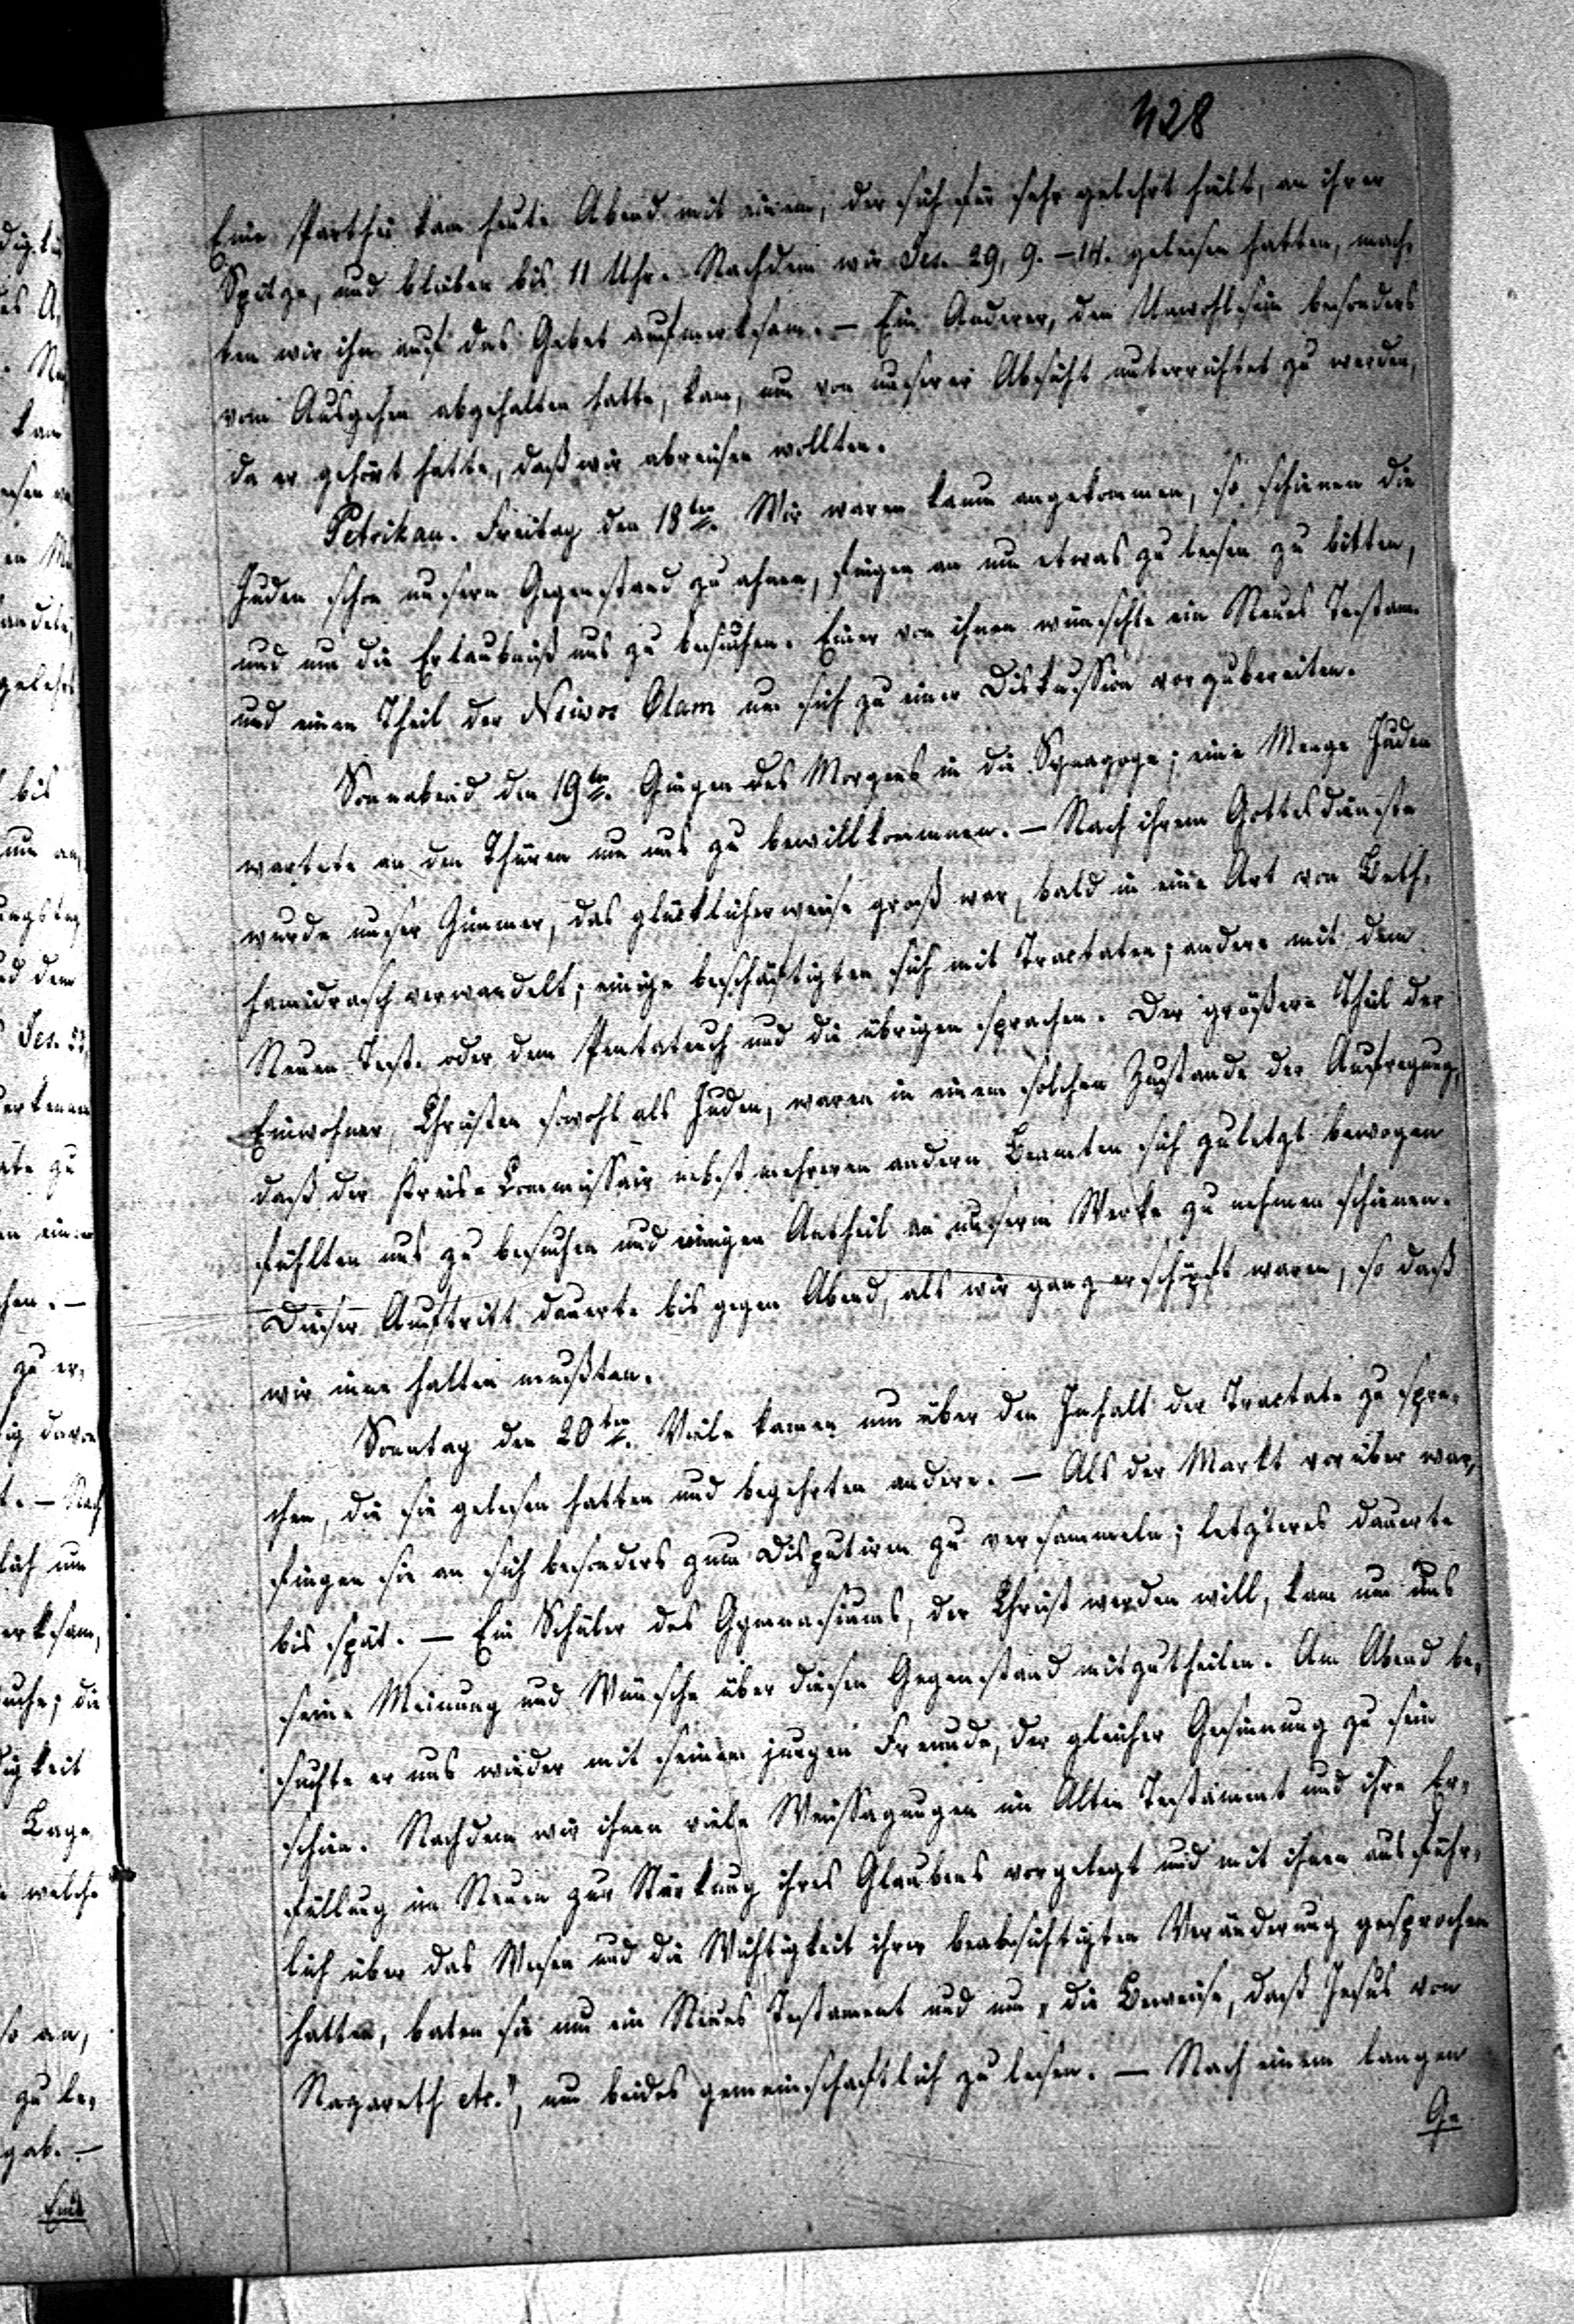 428
Eine Parthei kam heute Abend mit einem, der sich für sehr gelehrt hält, an ihrer
Spitze, und blieben bis 11 Uhr. Nachdem wir Jes. 29, 9.–14. gelesen hatten, mach-
ten wir ihn auf das Gebet aufmerksam. — Ein Anderer, den Unwohlsein besonders
vom Ausgehen abgehalten hatte, kam, um von unserer Absicht unterrichtet zu werden,
da er gehört hatte, daß wir abreisen wollten.
Petrikau. Freitag den 18ten. Wir waren kaum angekommen, so schienen die
Juden schon unsern Gegenstand zu ahnen, fingen an um etwas zu lesen zu bitten,
und um die Erlaubniß uns zu besuchen. Einer von ihnen wünschte ein Neues Testam.
und einen Theil der Nsiwos Olam um sich zu einer Diskussion vorzubereiten.
Sonnabend den 19ten. Gingen des Morgens in die Synagoge; eine Menge Juden
wartete an den Thüren um uns zu bewillkommnen. — Nach ihrem Gottesdienste
wurde unser Zimmer, das glücklicherweise groß war, bald in eine Art von Beth-
hamidrasch verwandelt; einige beschäftigten sich mit Tractaten; andere mit dem
Neuen Test. oder dem Pentateuch und die übrigen sprachen. Der größere Theil der
Einwohner, Christen sowohl als Juden, waren in einem solchen Zustande der Aufregung,
daß der Kreis-Commissair nebst mehreren andern Beamten sich zuletzt bewogen
fühlten uns zu besuchen und einigen Antheil an unserm Werke zu nehmen schienen.
Dieser Auftritt dauerte bis gegen Abend, als wir ganz erschöpft waren, so daß
wir inne halten mußten.
Sonntag den 20ten. Viele kamen um über den Inhalt der Tractate zu spre-
chen, die sie gelesen hatten und begehrten andere. — Als der Markt vorüber war,
fingen sie an sich besonders zum Disputiren zu versammeln; letzteres dauerte
bis spät. — Ein Schüler des Gymnasiums, der Christ werden will, kam um uns
seine Meinung und Wünsche über diesen Gegenstand mitzutheilen. Am Abend be-
suchte er uns wieder mit seinem jungen Freunde, der gleicher Gesinnung zu sein
schien. Nachdem wir ihnen viele Weissagungen im Alten Testament und ihre Er-
füllung im Neuen zur Stärkung ihres Glaubens vorgelegt und mit ihnen ausführ-
lich über das Wesen und die Wichtigkeit ihrer beabsichtigten Veränderung gesprochen
hatten, baten sie um ein Neues Testament und um „die Beweise, daß Jesus von
Nazareth etc.", um beides gemeinschaftlich zu lesen. — Nach einem langen
Ge